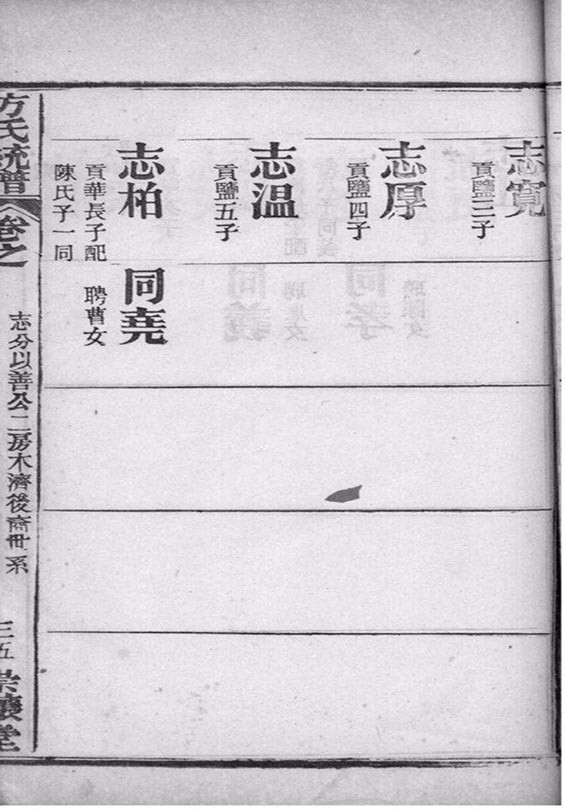 志寬
貢鹽三子
志厚
貢鹽四子
志溫
貢鹽五子
志柏
貢華長子配
陳氏子一同
同堯
聘曹女
方氏統譜
卷之
志分以善公二房木濟後裔世系
三五